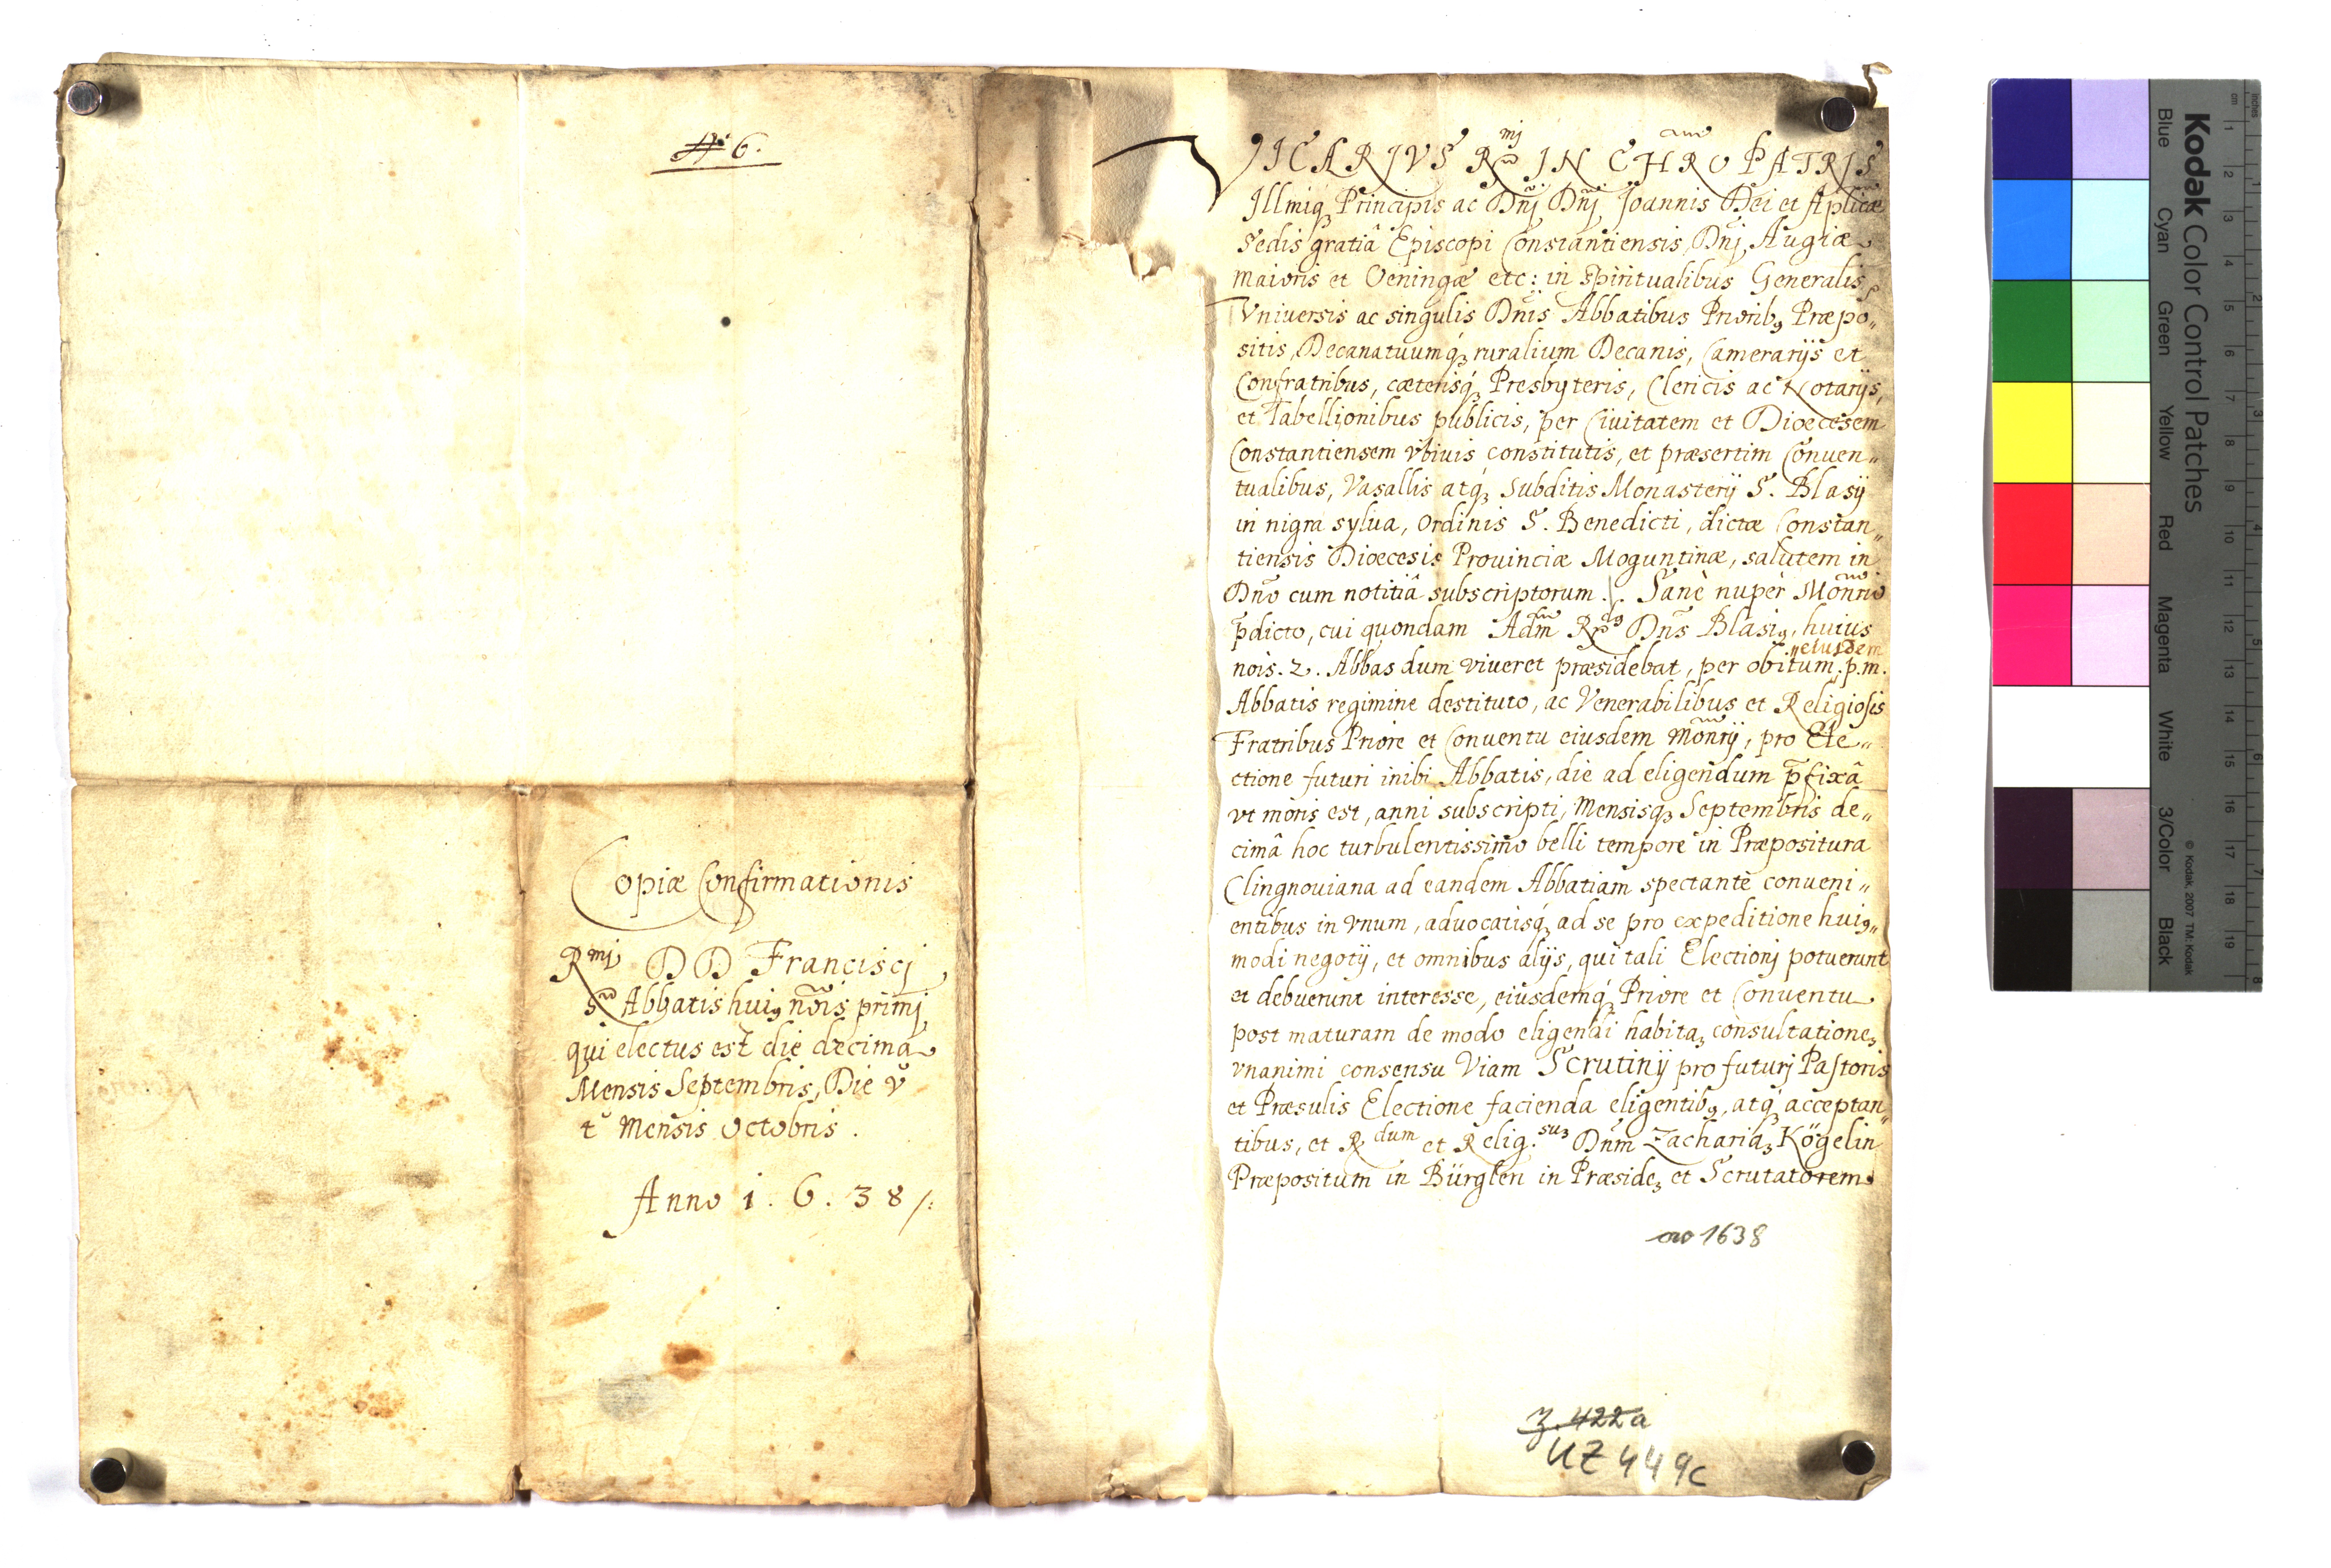 N: 6.
Copiæ Confirmationis
Rmi DD Francisci
Abbatis hui9 nõis primj
qui electus est die decima
Mensis Septembris, Die v
t Mensis Octobris.
Anno 1.6.38/:
VICARIVS Rmj IN CHRO PATRIS
Illmiq3 Principis ac Dnj Dnj Joannis Dei et Aplicæ
Sedis gratiâ Episcopi Constantiensis, Dnj Augiæ
maioris et Oeningæ etc: in Spiritualibus Generalis
Vniuersis ac singulis Dnis Abbatibus Priorib9 Præpo„
sitis, Decanatuumq́3 ruralium Decanis, Camerarijs et
Confratribus, cæterisq́3 Presbyteris, Clericis ac Notarijs,
et Tabellionibus publicis, per Ciuitatem et Dioecesem
Constantiensem vbiuis constitutis, et præsertim Conuen„
tualibus, Vasallis atq́3 Subditis Monasterij S. Blasij
in nigra sylua, Ordinis S. Benedicti, dictæ Constan„
tiensis Dioecesis Prouinciæ Moguntinæ, salutem in
Dno cum notitiâ subscriptorum ./. Sanè nuper Monrio
p̄dicto, cui quondam Adm R9 Dns Blasi9, huius
nois. 2. Abbas dum viueret præsidebat, per obitum „eiusdem p.m.
Abbatis regimine destituto, ac Venerabilibus et Religiosis
Fratribus Priore et Conuentu eiusdem Monrij, pro Ele„
ctione futuri inibi Abbatis, die ad eligendum p̄fixâ
vt moris est, anni subscripti, Mensisq3 Septembris de„
cimâ hoc turbulentissimo belli tempore in Præpositura
Clingnouiana ad eandem Abbatiam spectantè conueni„
entibus in vnum, aduocatisq́3 ad se pro expeditione hui9„
modi negotij, et omnibus alijs, qui tali Electionj potuerunt
et debuerunt interesse, eiusdemq́3 Priore et Conuentu
post maturam de modo eligendi habita3 consultatione3
vnanimi consensu Viam Scrutinij pro futurj Pastoris
et Præsulis Electione facienda eligentib9, atq́3 acceptan„
tibus, et Rdum et Relig.su3 Dnm Zacharia3 Kögelin
Præpositum in Bürglen in Præside3 et Scrutatorem
ao 1638
Z. 422a
UZ 449c
Kodak Color Control Patches
© Kodak, 2007 TM: Kodak
Blue Cyan Green Yellow Red Magenta White 3/Color Black
cm 1 2 3 4 5 6 7 8 9 10 11 12 13 14 15 16 17 18 19
inches 1 2 3 4 5 6 7 8